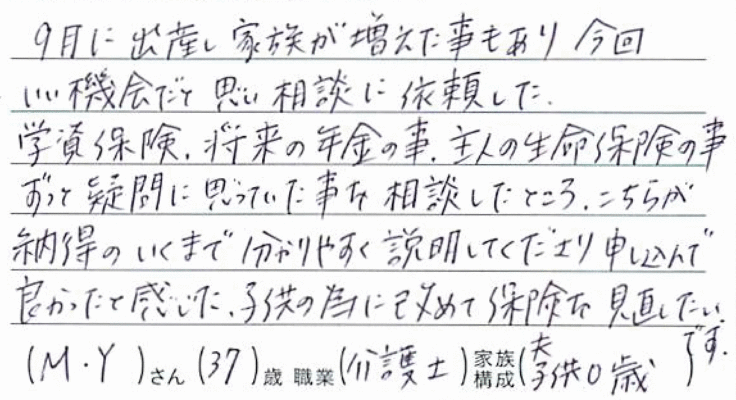 9月に出産し家族が増えた事もあり今回
いい機会だと思い相談に依頼した.
学資保険、将来の年金の事、主人の生命保険の事
ずっと疑問に思っていた事を相談したところ、こちらが
納得のいくまで分かりやすく説明してくださり申し込んで
良かったと感じた、子供の為に改めて保険を見直したい
です.
(M・Y)さん(37)歳 職業(介護士)家族構成(夫 子供0歳)